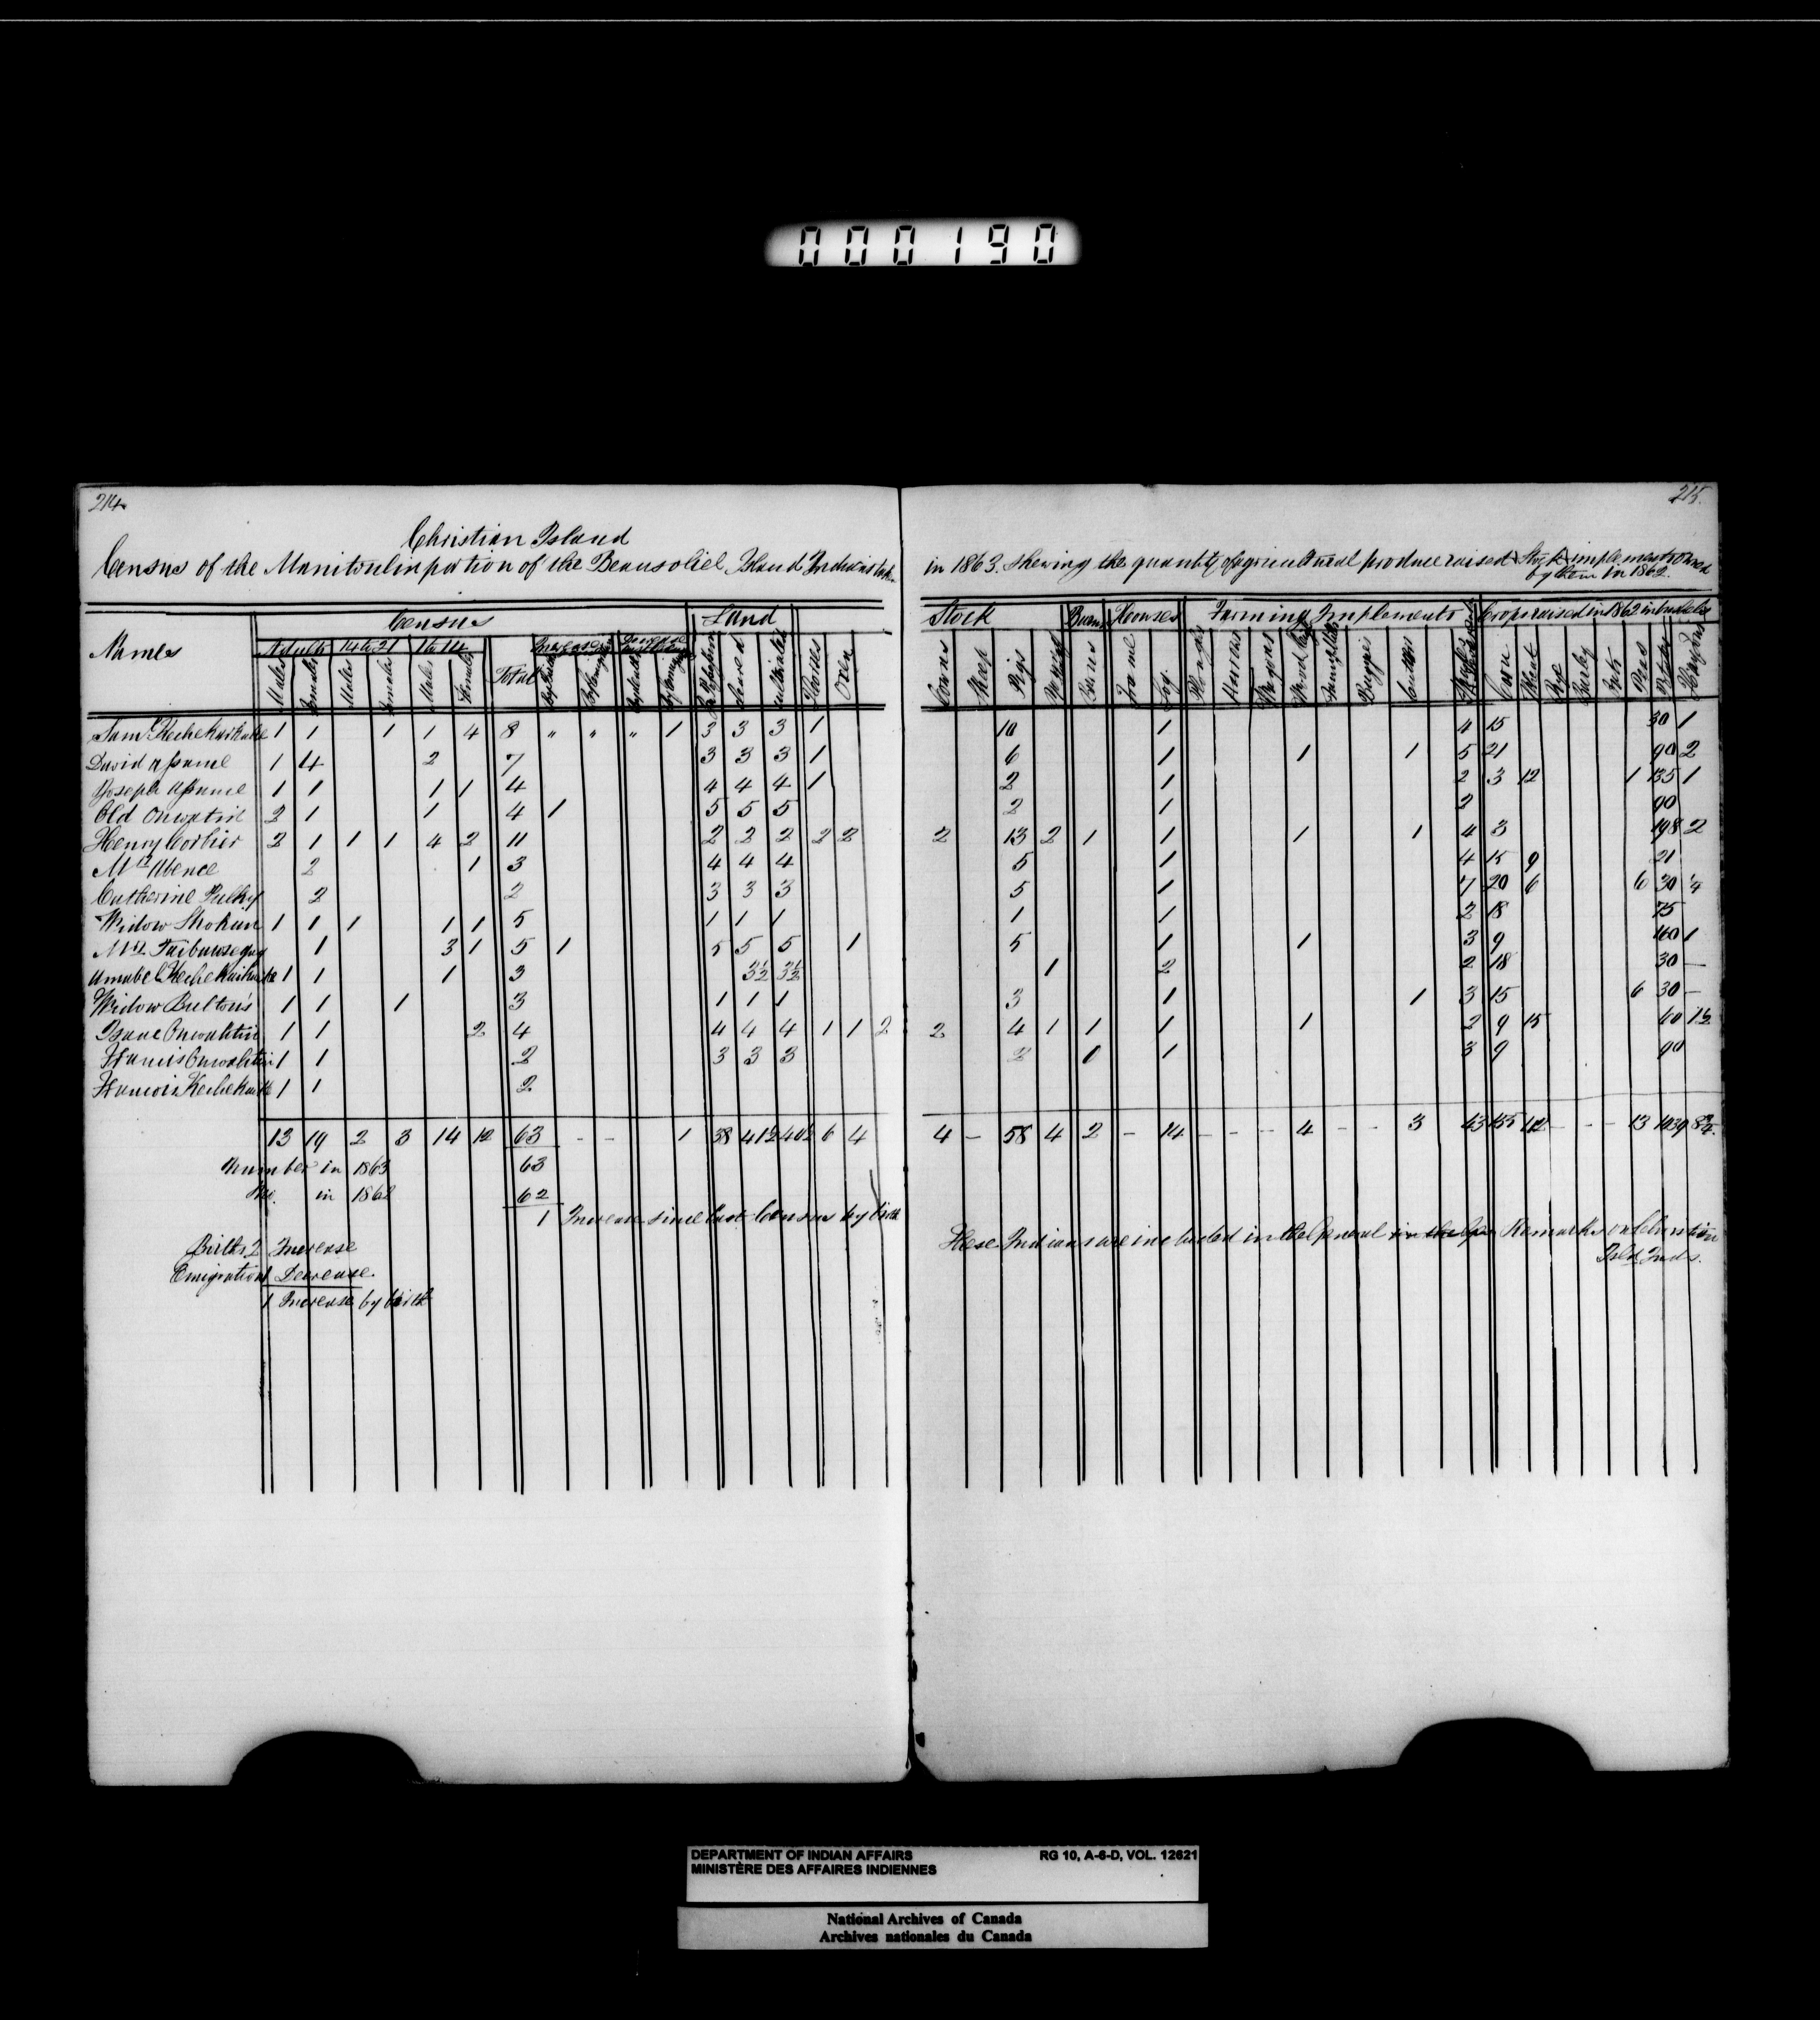 000190
214
215.
Christian Island
Census of the Manitoulin portion of the Beausoliel Island Indians taken
in 1863. shewing the quantity of agricultural produce raised & Stock & implements owned
by them in 1862.
Names Census Land
Adults 14 to 21 1 to 14 Total Increase Decrease
Males Females Males Females Males Females
Cleared Cultivated Horses Oxen
Stock Barns Houses Farming Implements Crops raised in 1862 in bushels
Cows Sheep Pigs Barns Frame Log Ploughs Harrows Waggons Fanning Mills Buggies Cutters Corn Wheat Rye Barley Oats Peas Potatoes
Sam 1 1 1 1 4 8 " " " 1 3 3 3 1 10 1 4 15 30 1
David Assance 1 4 2 7 3 3 3 1 6 1 1 1 5 21 90 2
Joseph Assance 1 1 1 1 4 4 4 4 1 2 1 2 3 12 1 135 1
Old Onwatin 2 1 1 4 1 5 5 5 2 1 2 90
Henry Corbier 2 1 1 1 4 2 11 2 2 2 2 2 2 13 2 1 1 1 1 4 3 198 2
2 1 3 4 4 4 5 1 4 15 9 21
Catherine 2 2 3 3 3 5 1 7 20 6 6 30 ¼
Widow 1 1 1 1 1 5 1 1 1 1 1 2 18 75
1 3 1 5 1 5 5 5 1 5 1 1 3 9 160 1
1 1 1 3 3½ 3½ 1 2 2 18 30 —
Widow 1 1 1 3 1 1 1 3 1 1 3 15 6 30 —
Isaac Onwahtin 1 1 2 4 4 4 4 1 1 2 2 4 1 1 1 1 2 9 15 60 1½
Francis 1 1 2 3 3 3 2 1 3 9 90
Francois 1 1 2
13 19 2 3 14 12 63 - - 1 38 41½ 40½ 6 4 4 — 58 4 2 — 14 - - - 4 - - 3 43 155 - - - 13
Number in 1863 63
Do. in 1862 62
1 Increase since last Census by birth
Births 2 Increase
Emigration 1 Decrease.
1 Increase by birth
These Indians are included in the General Remarks on Christian
Isld Inds.
DEPARTMENT OF INDIAN AFFAIRS RG 10, A-6-D, VOL. 12621
MINISTÈRE DES AFFAIRES INDIENNES
National Archives of Canada
Archives nationales du Canada